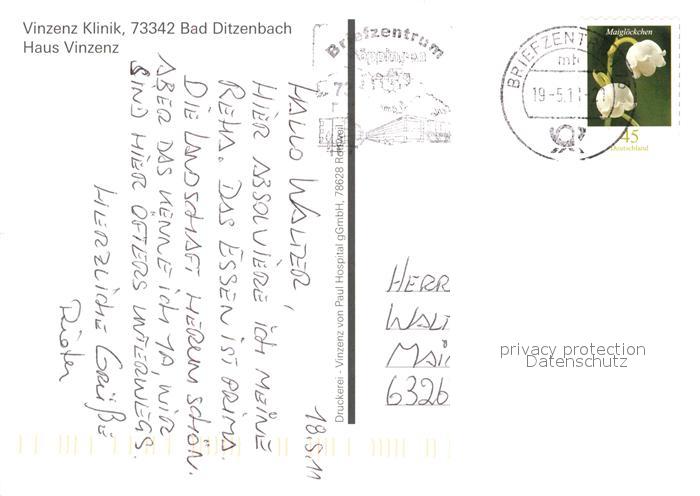 Vinzenz Klinik, 73342 Bad Ditzenbach
Haus Vinzenz
18.5.11
HALLO WALTER,
HIER ABSOLVIERE ICH MEINE
REHA. DAS ESSEN IST PRIMA.
DIE LANDSCHAFT HERUM SCHÖN.
ABER DAS KENNE ICH JA, WIR
SIND HIER ÖFTERS UNTERWEGS.
HERZLICHE GRÜßE
Dieter
Druckerei - Vinzenz von Paul Hospital gGmbH, 78628 Rottweil
Briefzentrum
Göppingen
73
BRIEFZENTRUM
mb
19-5.11
Maiglöckchen
45
Deutschland
HERR
WALT
MAI
6326
privacy protection
Datenschutz